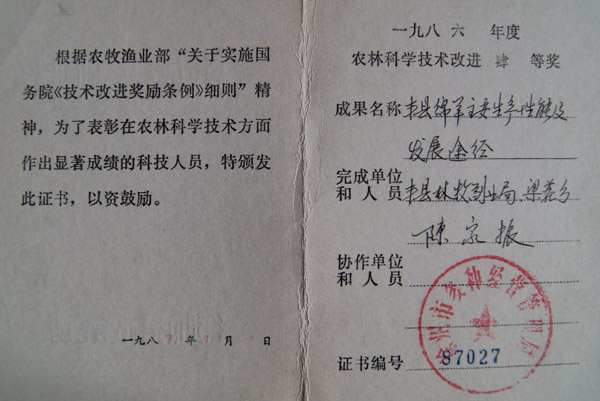 根据农牧渔业部“关于实施国
务院《技术改进奖励条例》细则”精
神，为了表彰在农林科学技术方面
作出显著成绩的科技人员，特颁发
此证书，以资鼓励。
一九八 年 月
一九八六 年度
农林科学技术改进 肆 等奖
成果名称 丰县绵羊主要生产性能及
发展途经
完成单位
和人员 丰县林牧副业局、梁
陈宗振
协作单位
和人员
市多种经营管理局
证书编号 87027